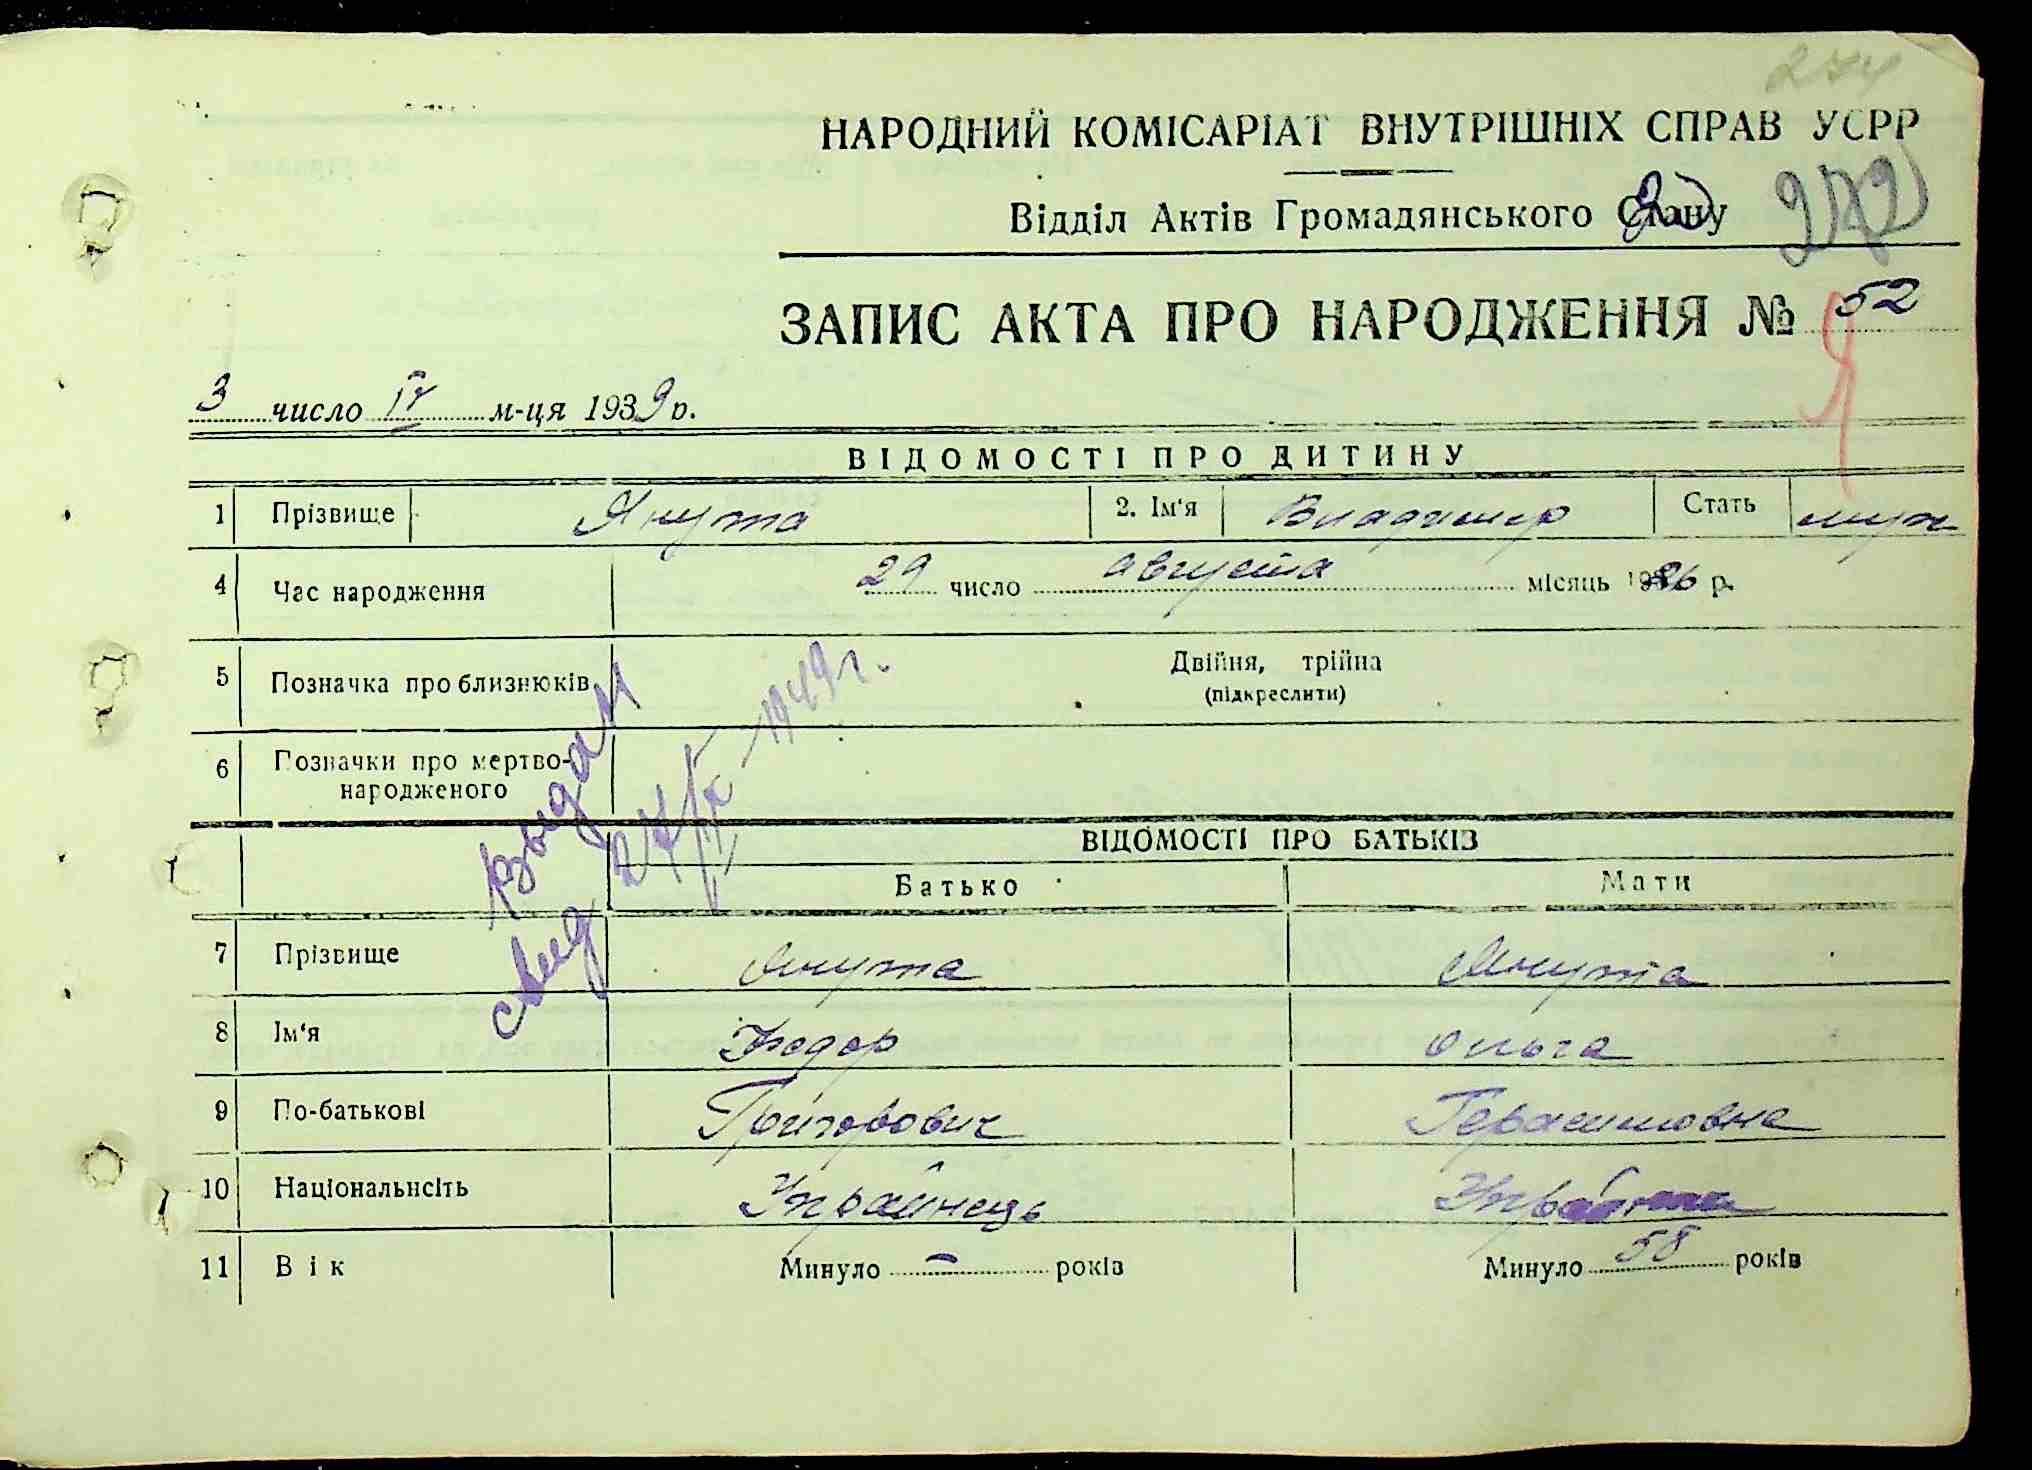 НАРОДНИЙ КОМІСАРІАТ ВНУТРІШНІХ СПРАВ УСРР
Відділ Актів Громадянського Стану
ЗАПИС АКТА ПРО НАРОДЖЕННЯ № 52
3 число IV м-ця 1939 р.
ВІДОМОСТІ ПРО ДИТИНУ
1 Прізвище Янута 2. Ім'я Владимир Стать муж
4 Час народження 29 число августа місяць р.
5 Позначка про близнюків Двійня, трійна
(підкреслити)
6 Позначки про мертво-
народженого
Выдан
свид 1949 г.
ВІДОМОСТІ ПРО БАТЬКІВ
Батько Мати
7 Прізвище Янута Янута
8 Ім'я Федор Ольга
9 По-батькові Григорович Герасимовна
10 Національнсіть Українець Українка
11 Вік Минуло – років Минуло 58 років